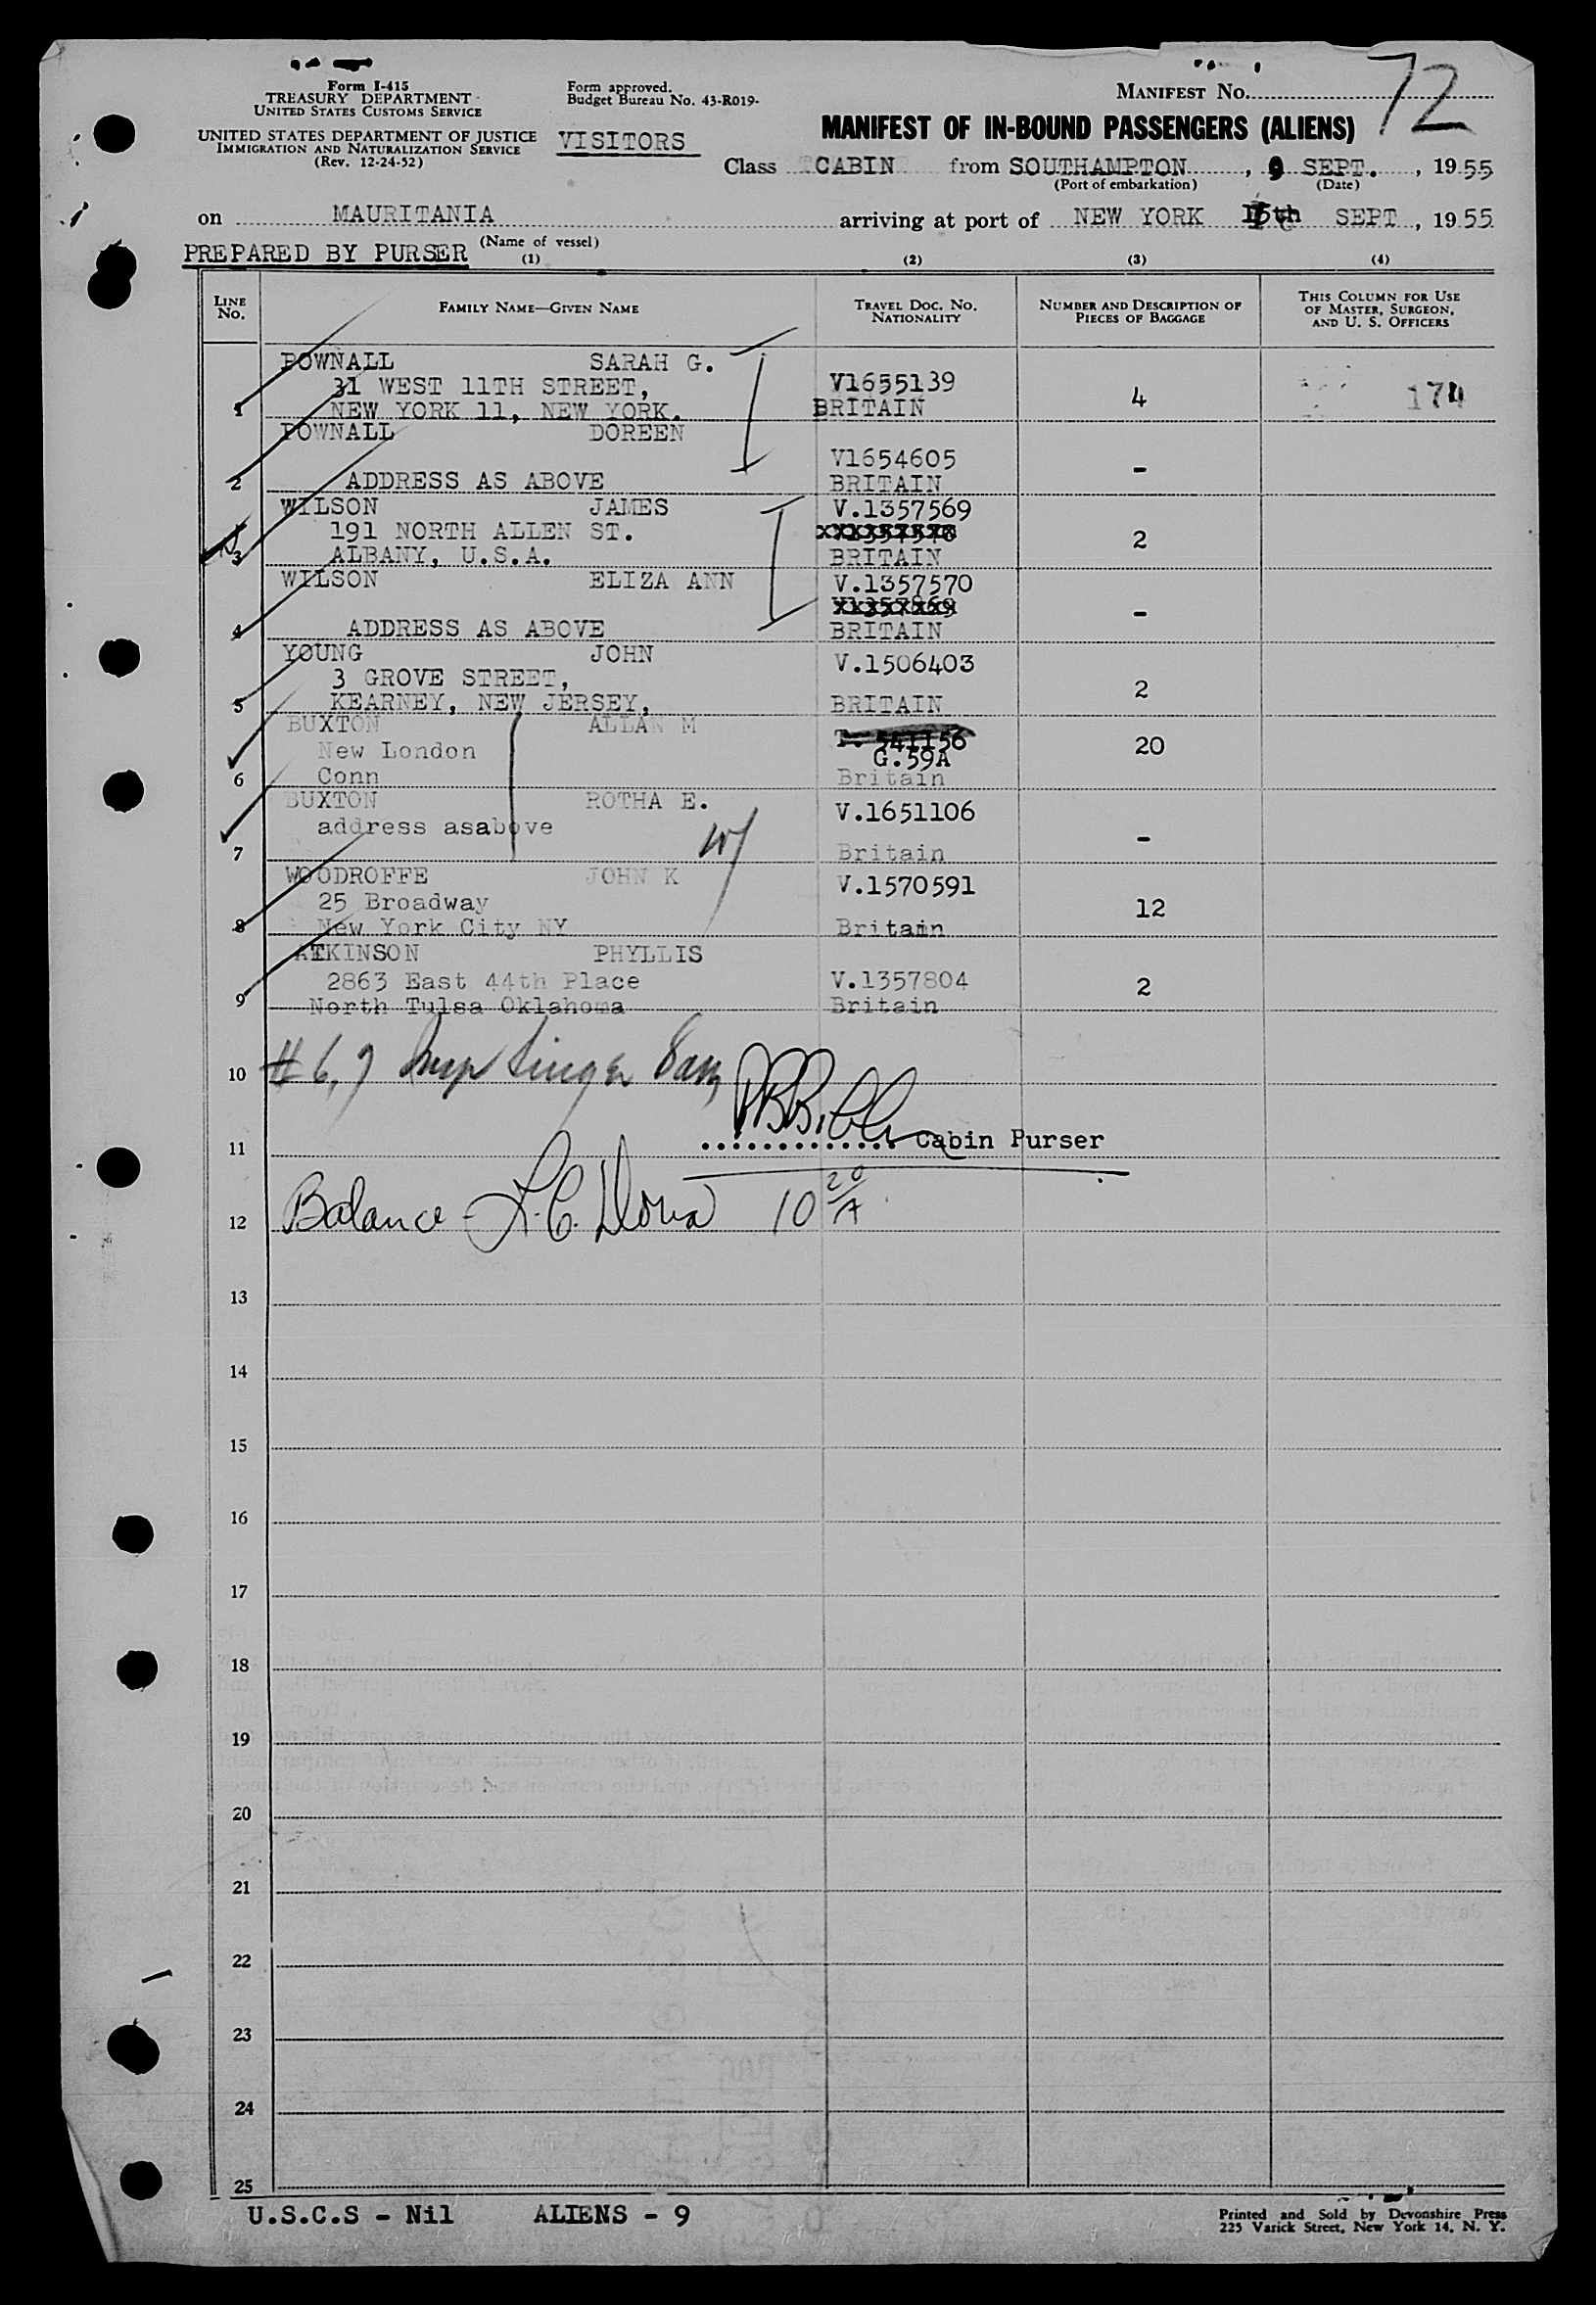 Form I-415
TREASURY DEPARTMENT
UNITED STATES CUSTOMS SERVICE
UNITED STATES DEPARTMENT OF JUSTICE
IMMIGRATION AND NATURALIZATION SERVICE
(Rev. 12-24-52)
Form approved.
Budget Bureau No. 43-R019-
VISITORS
MANIFEST No. 72
MANIFEST OF IN-BOUND PASSENGERS (ALIENS)
Class CABIN from SOUTHAMPTON, 9 SEPT., 1955
(Port of embarkation) (Date)
on MAURITANIA arriving at port of NEW YORK 15th SEPT, 1955
(Name of vessel)
PREPARED BY PURSER
(1) (2) (3) (4)
LINE No. FAMILY NAME—GIVEN NAME TRAVEL DOC. NO. NATIONALITY NUMBER AND DESCRIPTION OF PIECES OF BAGGAGE THIS COLUMN FOR USE OF MASTER, SURGEON, AND U. S. OFFICERS
POWNALL SARAH G.
31 WEST 11TH STREET, V1655139
1 NEW YORK 11, NEW YORK. BRITAIN 4 174
POWNALL DOREEN
V1654605
2 ADDRESS AS ABOVE BRITAIN -
WILSON JAMES V.1357569
191 NORTH ALLEN ST.
3 ALBANY, U.S.A. BRITAIN 2
WILSON ELIZA ANN V.1357570
4 ADDRESS AS ABOVE BRITAIN -
YOUNG JOHN V.1506403
3 GROVE STREET,
5 KEARNEY, NEW JERSEY, BRITAIN 2
BUXTON ALLAN M 541156
New London G.59A 20
6 Conn Britain
BUXTON ROTHA E. V.1651106
address asabove -
7 Britain
WOODROFFE JOHN K V.1570591
25 Broadway 12
8 New York City NY Britain
ATKINSON PHYLLIS
2863 East 44th Place V.1357804
9 North Tulsa Oklahoma Britain 2
10 # 6, 7 Insp
11 Cabin Purser
12 Balance - 10 20/A
13
14
15
16
17
18
19
20
21
22
23
24
25
U.S.C.S - Nil ALIENS - 9
Printed and Sold by Devonshire Press
225 Varick Street, New York 14, N. Y.